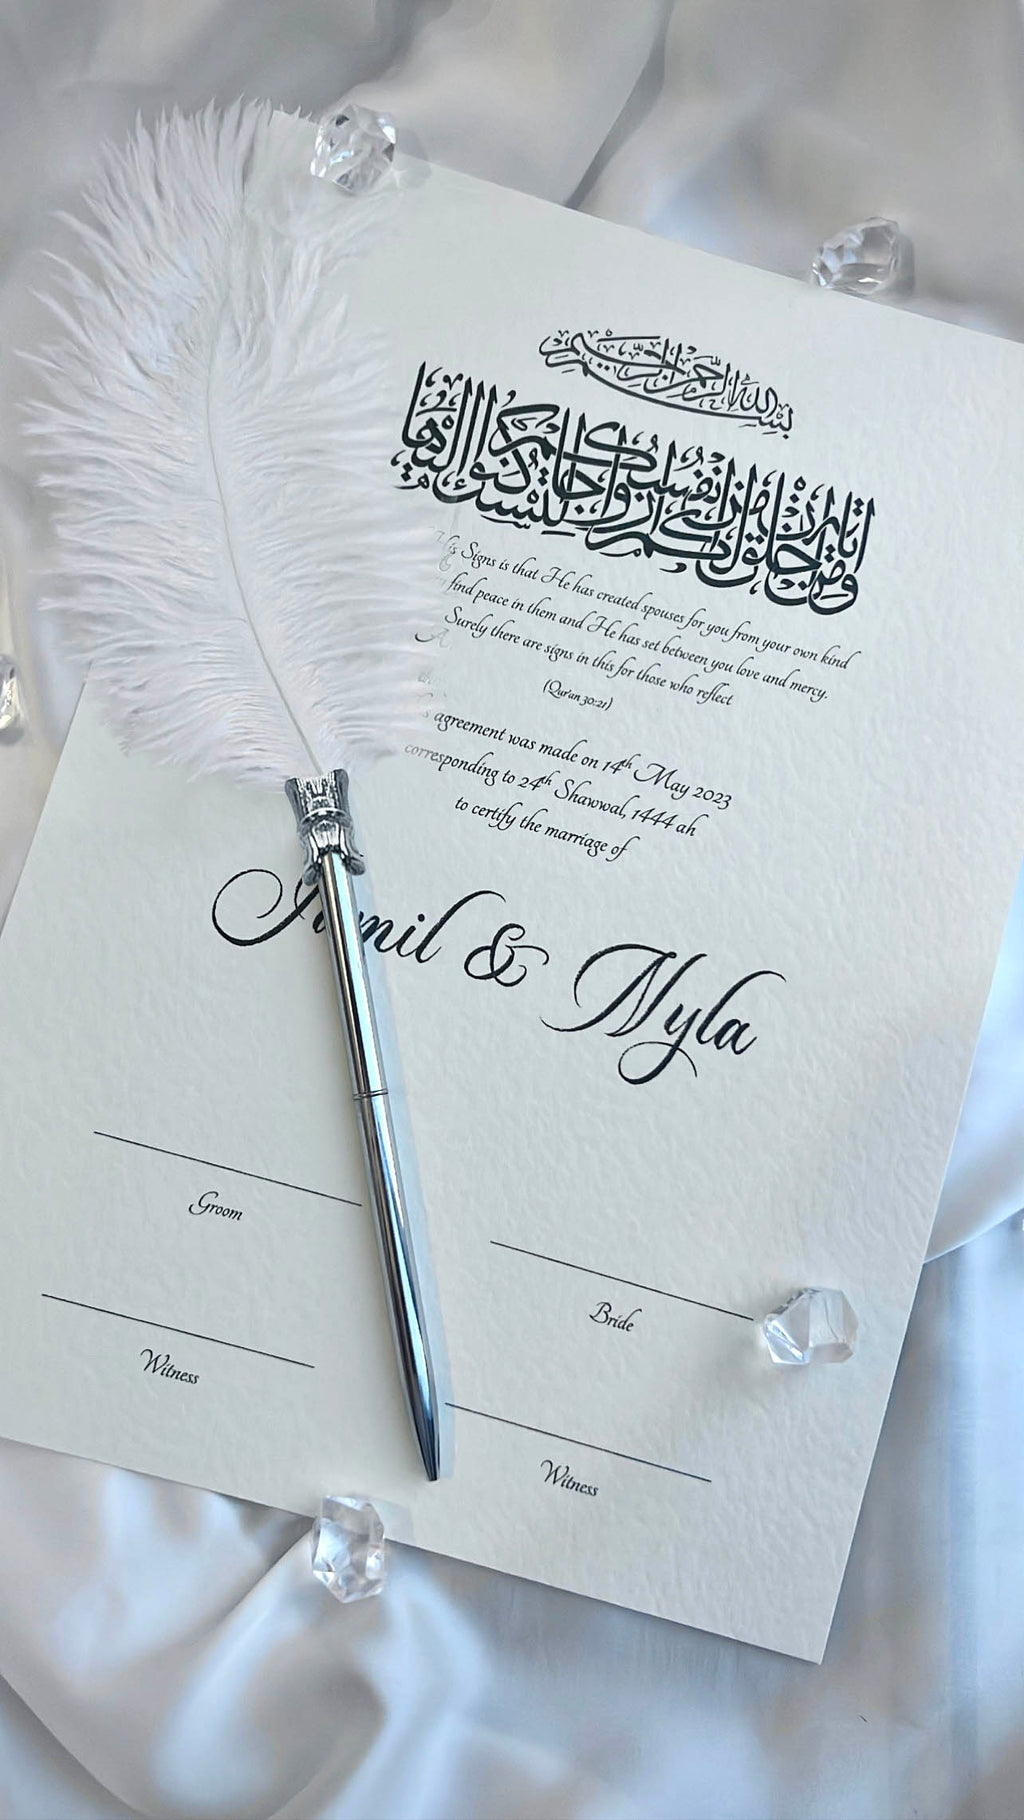 بسم الله الرحمن الرحيم
ومن آياته أن خلق لكم من أنفسكم أزواجا لتسكنوا إليها
His Signs is that He has created spouses for you from your own kind
find peace in them and He has set between you love and mercy.
Surely there are signs in this for those who reflect
(Qur'an 30:21)
agreement was made on 14th May 2023
corresponding to 24th Shawwal, 1444 ah
to certify the marriage of
Jamil & Nyla
Groom
Bride
Witness
Witness